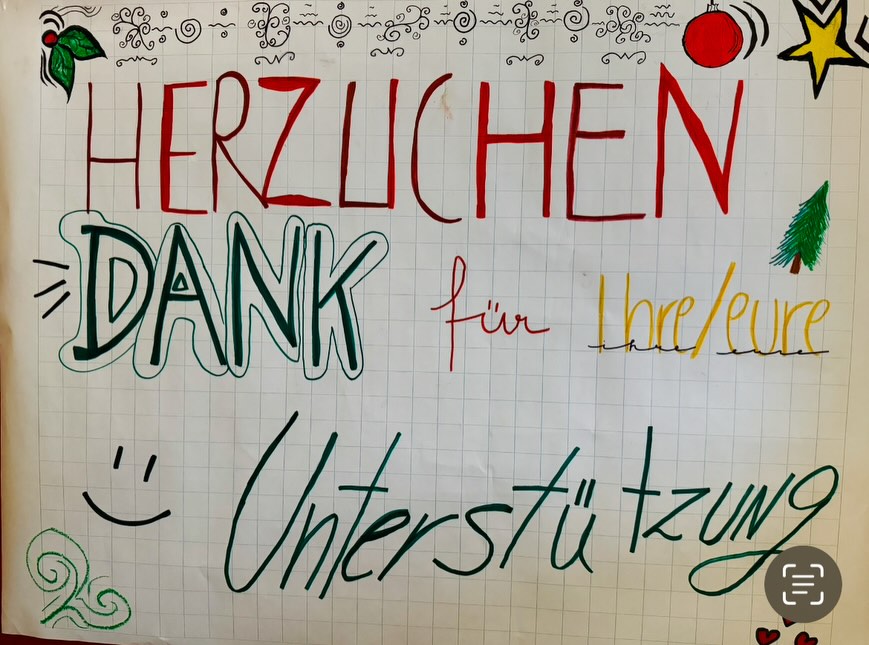 HERZLICHEN
DANK für Ihre/eure
ihre eure
Unterstützung